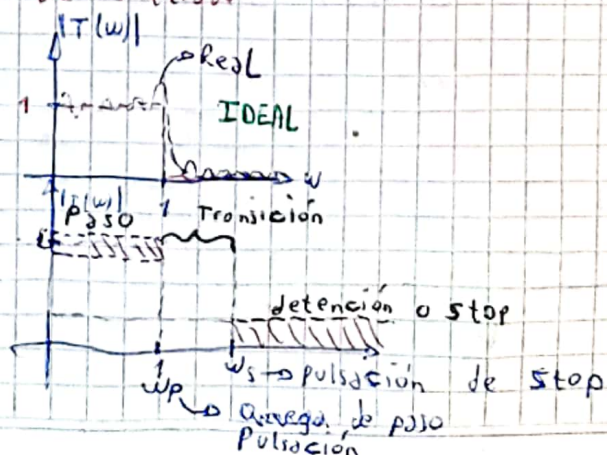 |T(w)|
Real
1
IDEAL
w
|T(w)|
Paso
1
Transición
detención o stop
1
ws → pulsación de stop
wp
de paso
Pulsación